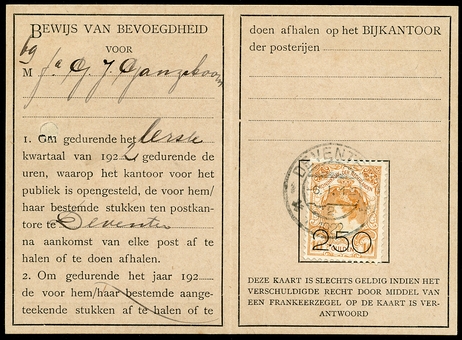 BEWIJS VAN BEVOEGDHEID
VOOR
M fa G. J. Ganzeboom
1. Om gedurende het Eerste
kwartaal van 192 gedurende de
uren, waarop het kantoor voor het
publiek is opengesteld, de voor hem/
haar bestemde stukken ten postkan-
tore te Deventer
na aankomst van elke post af te
halen of te doen afhalen.
2. Om gedurende het jaar 192
de voor hem/haar bestemde aange-
teekende stukken af te halen of te
doen afhalen op het BIJKANTOOR
der posterijen
DEVENT
250
DEZE KAART IS SLECHTS GELDIG INDIEN HET
VERSCHULDIGDE RECHT DOOR MIDDEL VAN
EEN FRANKEERZEGEL OP DE KAART IS VER-
ANTWOORD